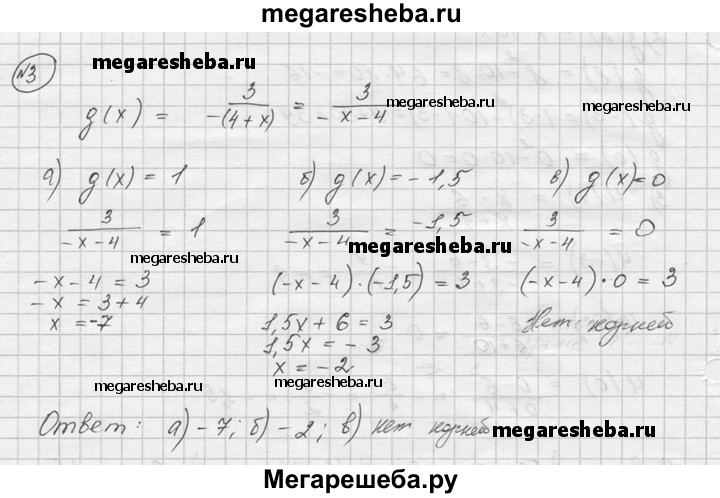 megaresheba.ru
№3
megaresheba.ru
g(x) = 3/-(4+x) = 3/-x-4
megaresheba.ru
megaresheba.ru
а) g(x) = 1 б) g(x) = -1,5 в) g(x)=0
3/-x-4 = 1 3/-x-4 = -1,5 3/-x-4 = 0
megaresheba.ru
megaresheba.ru
-x-4 = 3 (-x-4)·(-1,5) = 3 (-x-4)·0 = 3
-x = 3+4 1,5x + 6 = 3 Нет корней
x = -7 1,5x = -3
x = -2
megaresheba.ru
megaresheba.ru
Ответ: а) -7; б) -2; в) нет корней
megaresheba.ru
Мегарешеба.ру